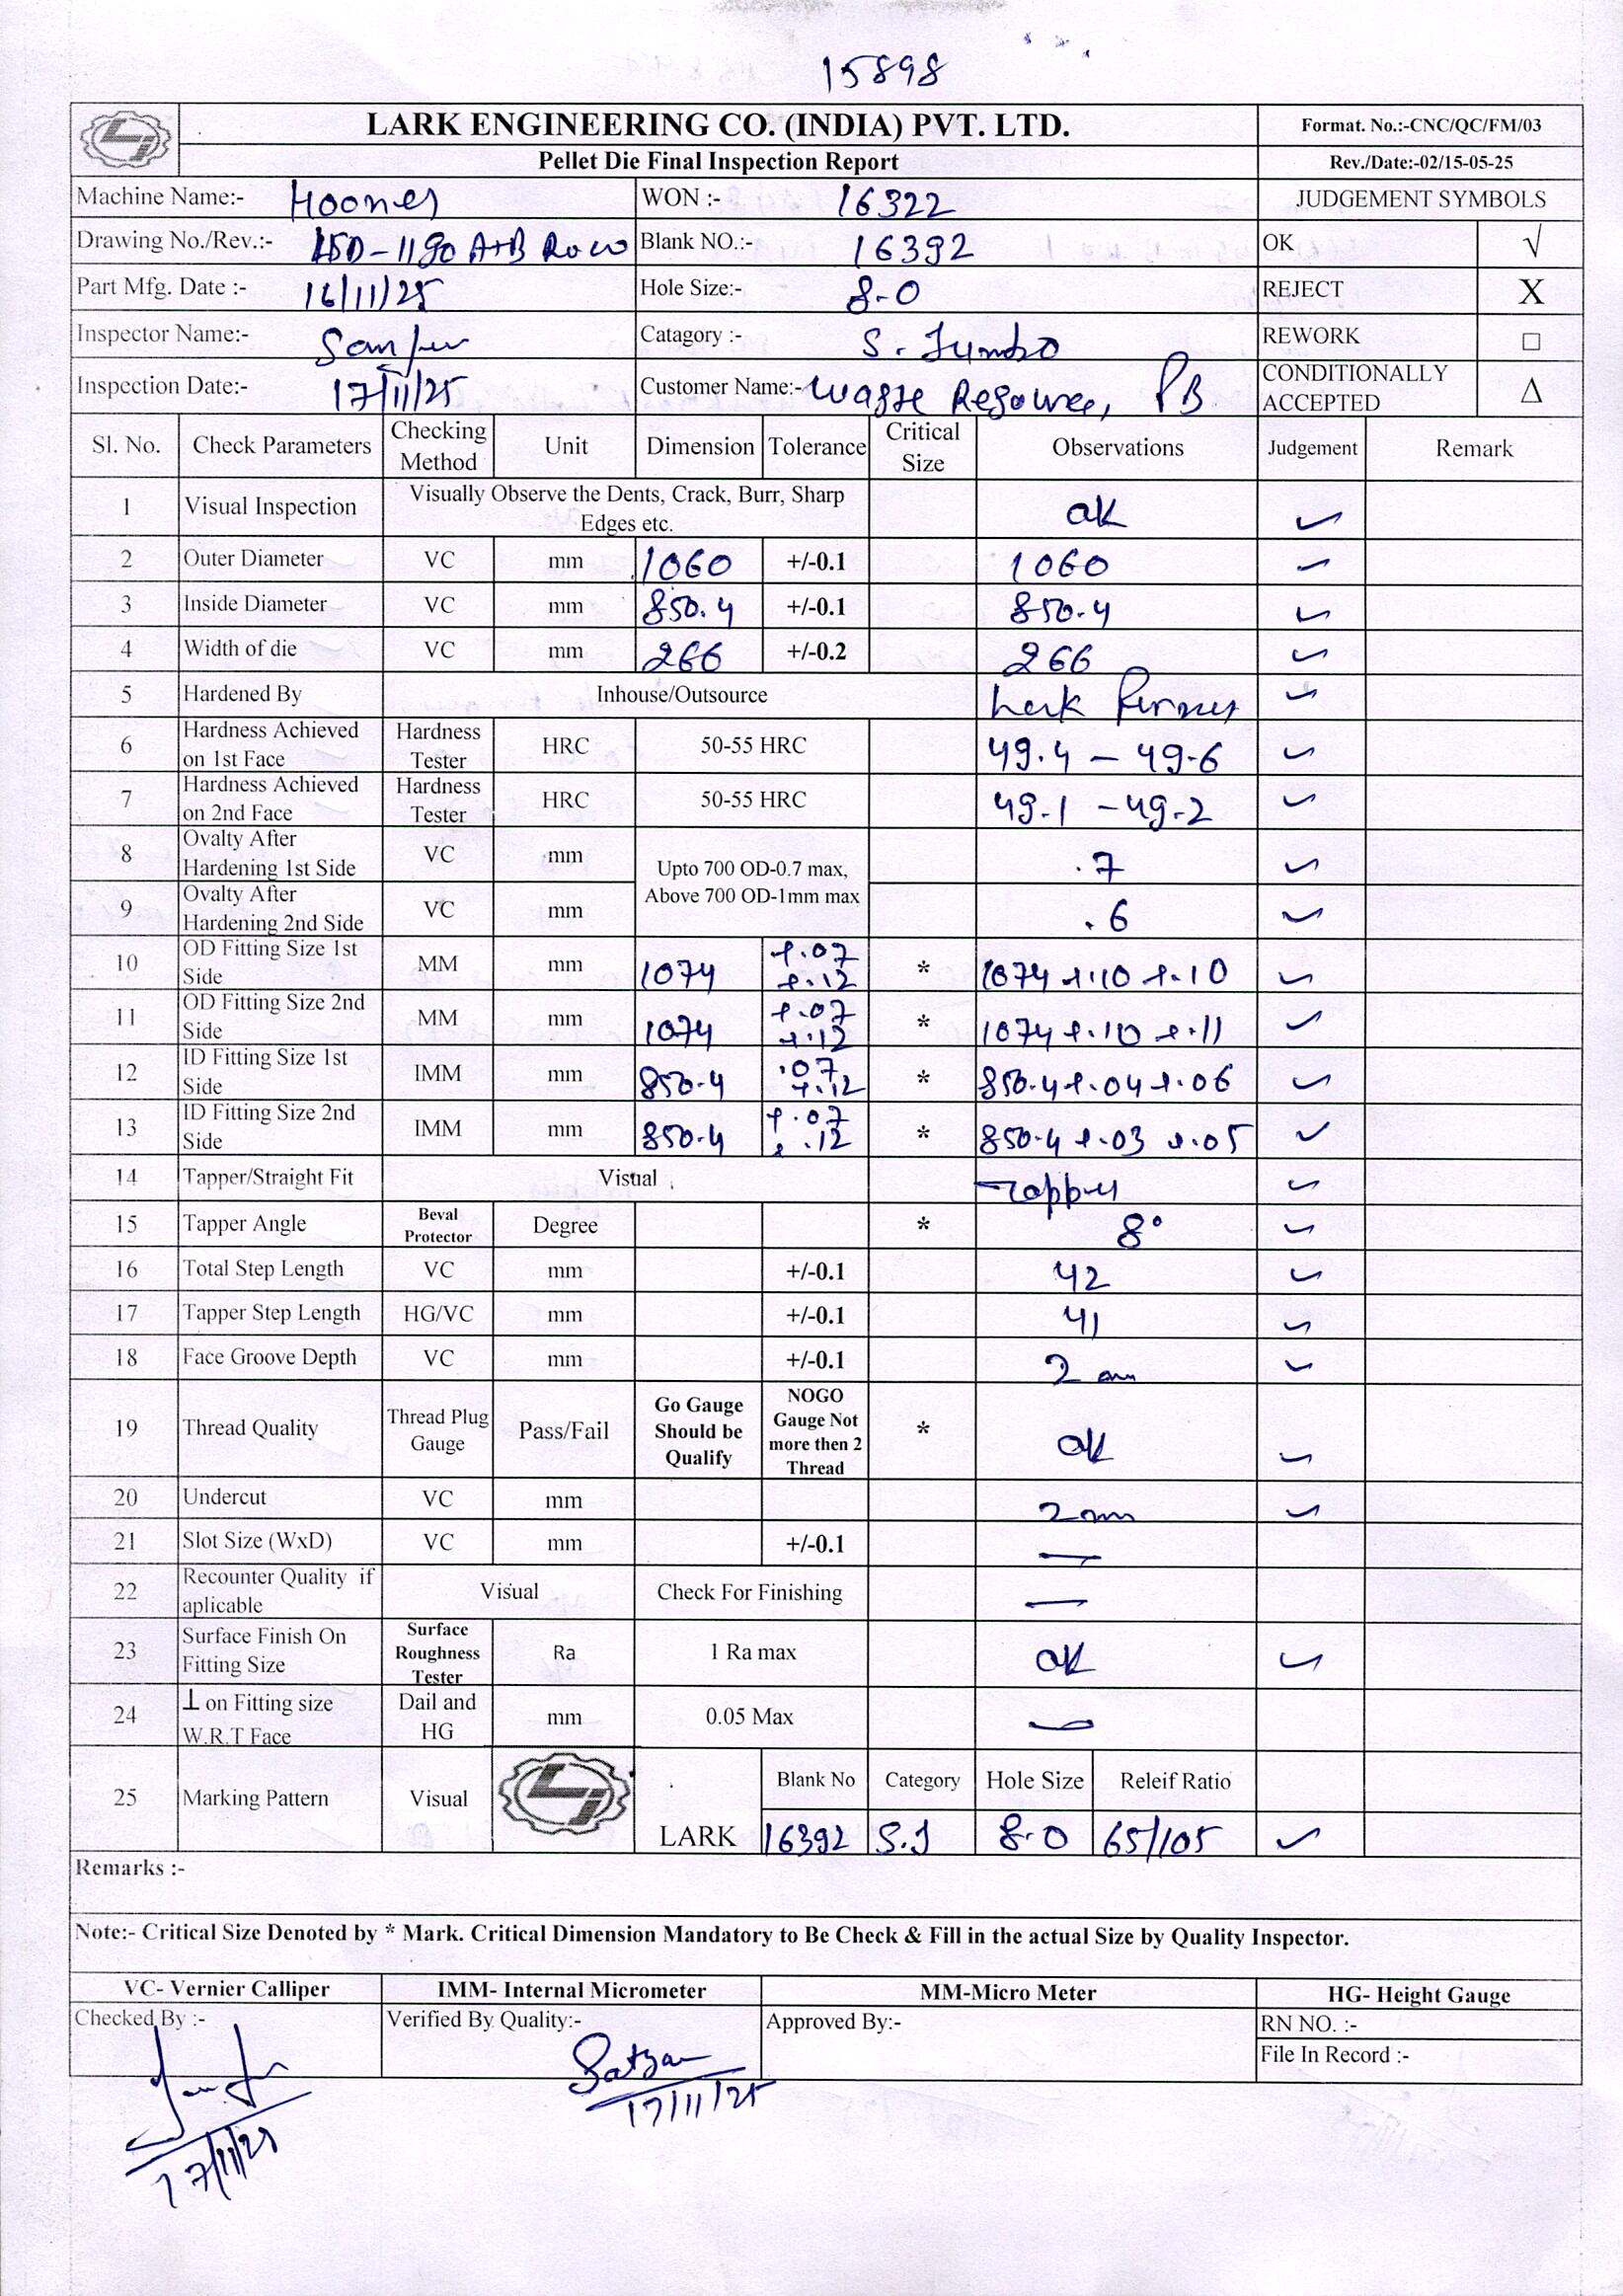 15898
LARK ENGINEERING CO. (INDIA) PVT. LTD. Format. No.:-CNC/QC/FM/03
Pellet Die Final Inspection Report Rev./Date:-02/15-05-25
Machine Name:- WON :- 16322 JUDGEMENT SYMBOLS
Drawing No./Rev.:- A+B Row Blank NO.:- 16392 OK √
Part Mfg. Date :- 16/11/25 Hole Size:- 8-0 REJECT X
Inspector Name:- Catagory :- S. Jumbo REWORK □
Inspection Date:- 17/11/25 Customer Name:- PB CONDITIONALLY ACCEPTED Δ
Sl. No. Check Parameters Checking Method Unit Dimension Tolerance Critical Size Observations Judgement Remark
1 Visual Inspection Visually Observe the Dents, Crack, Burr, Sharp Edges etc. ok ✓
2 Outer Diameter VC mm 1060 +/-0.1 1060 ✓
3 Inside Diameter VC mm 850.4 +/-0.1 850.4 ✓
4 Width of die VC mm 266 +/-0.2 266 ✓
5 Hardened By Inhouse/Outsource ✓
6 Hardness Achieved on 1st Face Hardness Tester HRC 50-55 HRC 49.4 – 49.6 ✓
7 Hardness Achieved on 2nd Face Hardness Tester HRC 50-55 HRC 49.1 – 49.2 ✓
8 Ovalty After Hardening 1st Side VC mm Upto 700 OD-0.7 max, Above 700 OD-1mm max .7 ✓
9 Ovalty After Hardening 2nd Side VC mm .6 ✓
10 OD Fitting Size 1st Side MM mm 1074 +.07 +.12 * 1074 +.10 +.10 ✓
11 OD Fitting Size 2nd Side MM mm 1074 +.07 +.12 * 1074 +.10 +.11 ✓
12 ID Fitting Size 1st Side IMM mm 850.4 .07 +.12 * 850.4 +.04 +.06 ✓
13 ID Fitting Size 2nd Side IMM mm 850.4 +.07 +.12 * 850.4 +.03 +.05 ✓
14 Tapper/Straight Fit Visual Tapper ✓
15 Tapper Angle Beval Protector Degree * 8° ✓
16 Total Step Length VC mm +/-0.1 42 ✓
17 Tapper Step Length HG/VC mm +/-0.1 41 ✓
18 Face Groove Depth VC mm +/-0.1 2 mm ✓
19 Thread Quality Thread Plug Gauge Pass/Fail Go Gauge Should be Qualify NOGO Gauge Not more then 2 Thread * ok ✓
20 Undercut VC mm 2mm ✓
21 Slot Size (WxD) VC mm +/-0.1 —
22 Recounter Quality if aplicable Visual Check For Finishing —
23 Surface Finish On Fitting Size Surface Roughness Tester Ra 1 Ra max ok ✓
24 ⊥ on Fitting size W.R.T Face Dail and HG mm 0.05 Max —
25 Marking Pattern Visual LARK Blank No Category Hole Size Releif Ratio
16392 S.J 8.0 65/105 ✓
Remarks :-
Note:- Critical Size Denoted by * Mark. Critical Dimension Mandatory to Be Check & Fill in the actual Size by Quality Inspector.
VC- Vernier Calliper IMM- Internal Micrometer MM-Micro Meter HG- Height Gauge
Checked By :- Verified By Quality:- Approved By:- RN NO. :-
File In Record :-
17/11/25
17/11/25